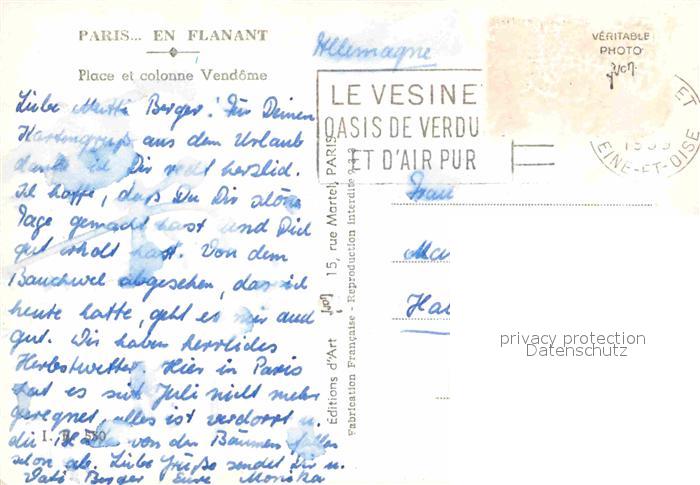 PARIS... EN FLANANT
Place et colonne Vendôme
Liebe Mutti Berger! Für Deinen
Kartengruß aus dem Urlaub
danke ich Dir recht herzlich.
Ich hoffe, daß Du Dir schöne
Tage gemacht hast und Dich
gut erholt hast. Von dem
Bauchweh abgesehen, das ich
heute hatte, geht es mir auch
gut. Wir haben herrliches
Herbstwetter. Hier in Paris
hat es seit Juli nicht mehr
geregnet, alles ist verdorrt u.
die von den Bäumen fallen
schon ab. Liebe Grüße sendet Dir u.
Vati Berger Eure Monika
I. 580
Éditions d'Art yvon 15, rue Martel, PARIS
Fabrication Française - Reproduction interdite
Allemagne
VÉRITABLE
PHOTO
yvon
LE VESINE
OASIS DE VERDU
ET D'AIR PUR
ET
EINE-ET-OISE
Frau
Ma
Ha
privacy protection
Datenschutz